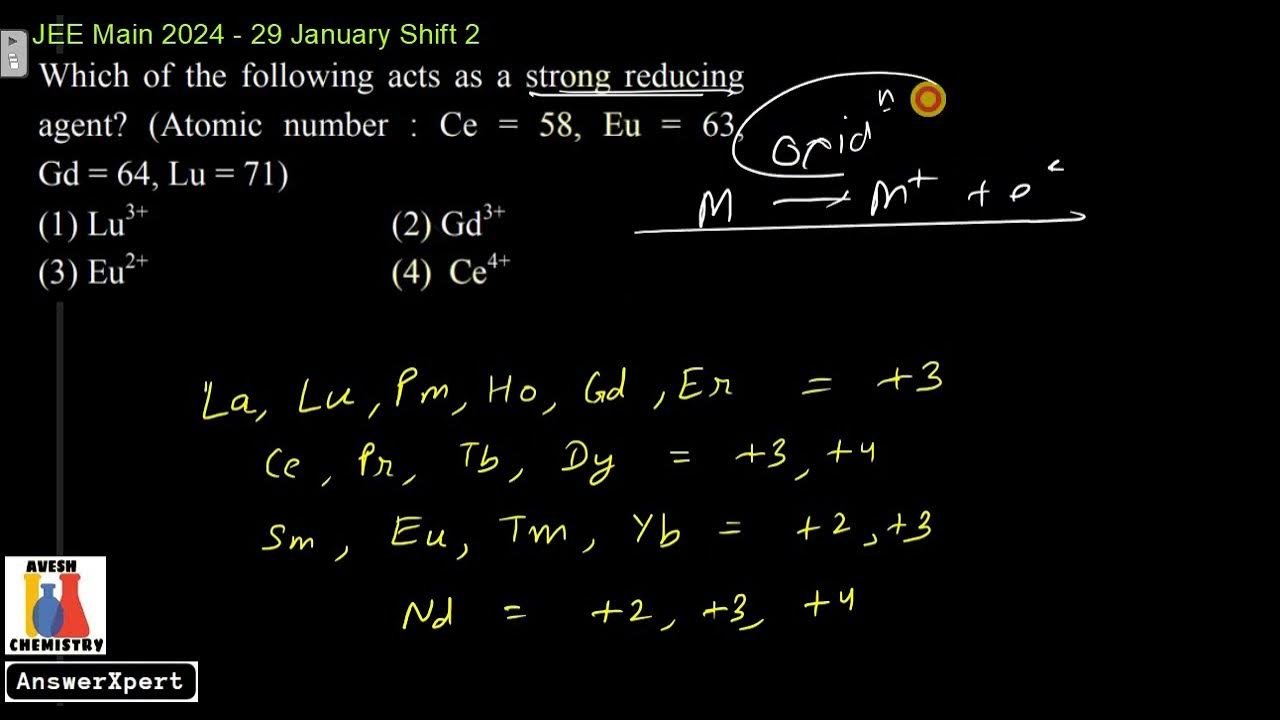 JEE Main 2024 - 29 January Shift 2
Which of the following acts as a strong reducing
agent? (Atomic number : Ce = 58, Eu = 63,
Gd = 64, Lu = 71)
(1) Lu³⁺ (2) Gd³⁺
(3) Eu²⁺ (4) Ce⁴⁺
oxidⁿ
M → M⁺ + e⁻
La, Lu, Pm, Ho, Gd, Er = +3
Ce, Pr, Tb, Dy = +3, +4
Sm, Eu, Tm, Yb = +2, +3
Nd = +2, +3, +4
AVESH
CHEMISTRY
AnswerXpert